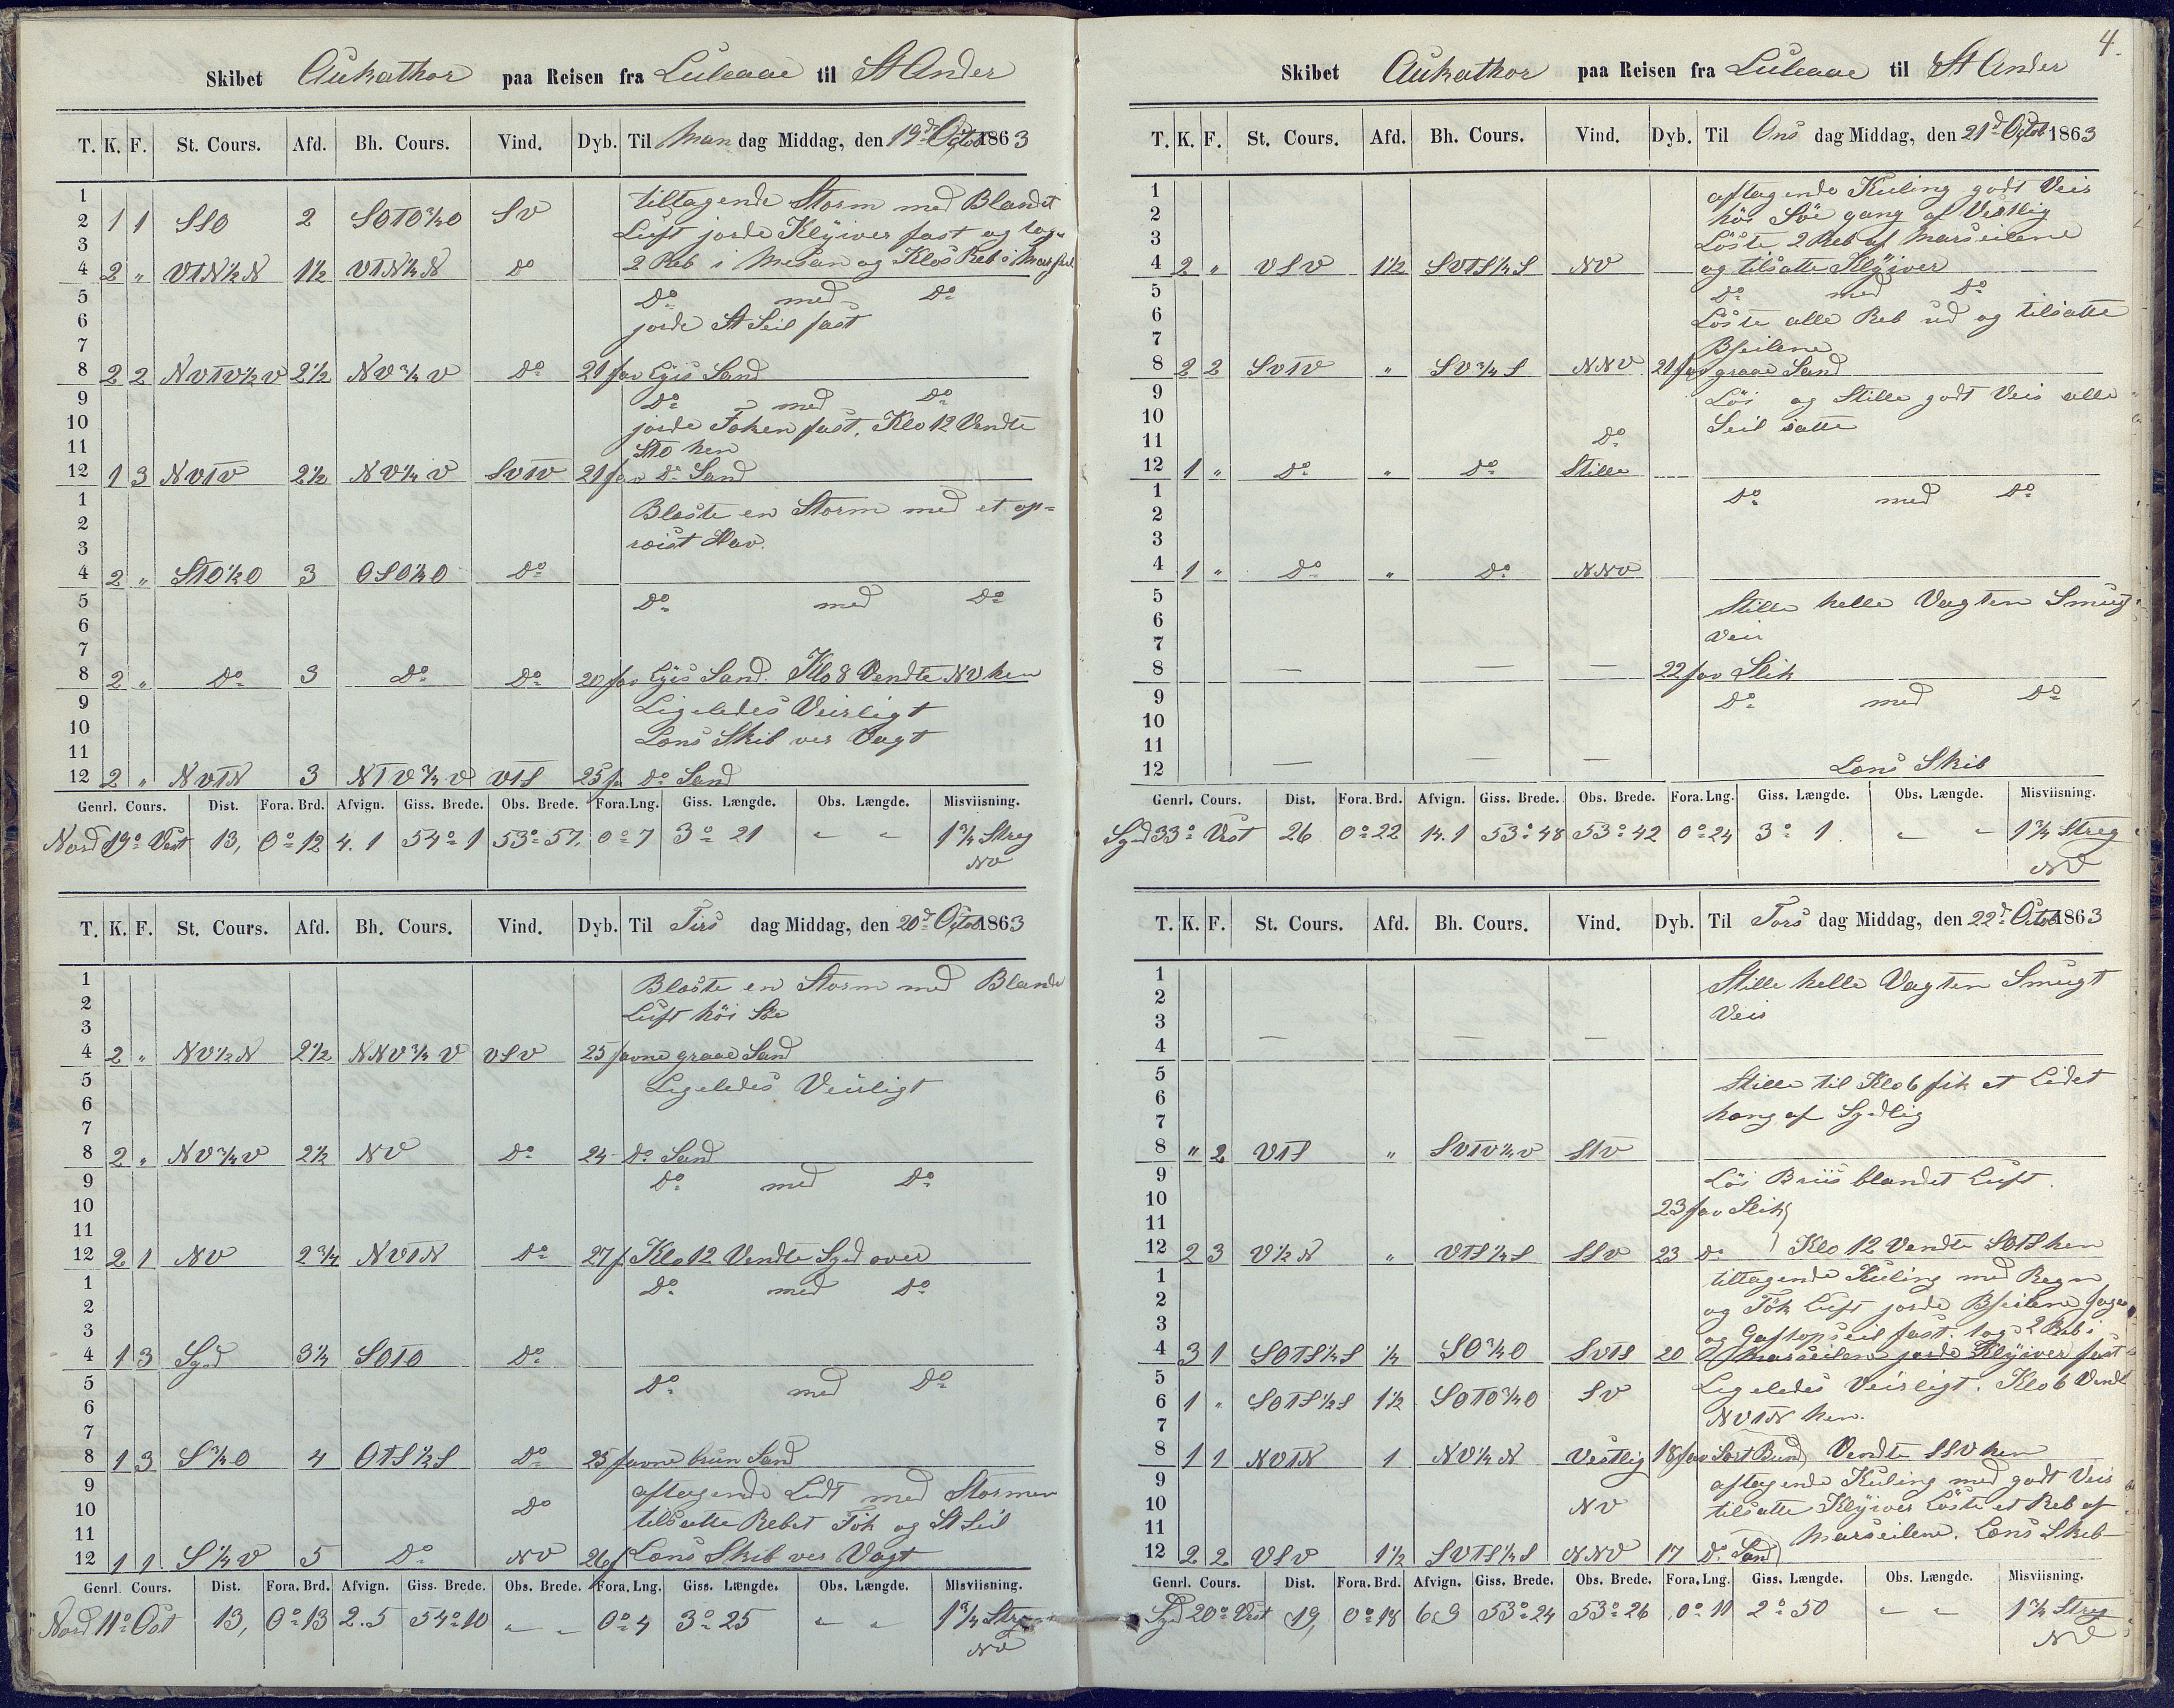 Skibet Aukathor paa Reisen fra Luleaae til St Ander
T. K. F. St. Cours. Afd. Bh. Cours. Vind. Dyb. Til Man dag Middag, den 19d Octob 1863
1 tiltagende Storm med Blandet
2 1 1 SSO 2 SOTO¾O SV Luft jorde Klÿiver fast og tog
3
4 2 " VTN½N 1½ VTN¼N Do 2 Reb i Mesan og Klos Reb i
5 Do med Do
6 jorde St Seil fast
7
8 2 2 NVTV½V 2½ NV¾V Do 21 fav Lÿis Sand
9 Do med Do
10 jorde Foken fast. Klo 12 Vendte
11 StO hen
12 1 3 NVTV 2½ NV¼V SVTV 21 fav Do Sand
1 Bloste en Storm med et op=
2 roist Hav.
3
4 2 " STO½O 3 OSO½O Do
5 Do med Do
6
7
8 2 " Do 3 Do Do 20 fav Lÿis Sand. Klo 8 Vendte NV hen
9 Ligeledes Veirligt
10 Lens Skib ver Vagt
11
12 2 " NVTN 3 NTV¾V VTS 25 fa Do Sand
Genrl. Cours. Dist. Fora. Brd. Afvign. Giss. Brede. Obs. Brede. Fora. Lng. Giss. Længde. Obs. Længde. Misviisning.
Nord 19o Vest 13, 0o 12 4.1 54o 1 53o 57. 0o 7 3o 21 " " 1¾ Streg
NV
T. K. F. St. Cours. Afd. Bh. Cours. Vind. Dyb. Til Tirs dag Middag, den 20d Octob 1863
1 Bloste en Storm med Blande
2 Luft höi Söe
3
4 2 " NV½N 2½ NNV¾V VSV 25 favne graae Sand
5 Ligeledes Veirligt
6
7
8 2 " NV¾V 2½ NV Do 24 - Do Sand
9 Do med Do
10
11
12 2 1 NV 2¾ NVTN Do 27 f Klo 12 Vendte Syd over
1 Do med Do
2
3
4 1 3 Syd 3¼ SOTO Do
5 Do med Do
6
7
8 1 3 S¾O 4 OTS½S Do 25 favne brun Sand
9 aftagende Lidt med Stormen
10 Do tilsatte Rebet Fok og St Seil
11
12 1 1 S¼V 5 Do NV 26 f Lens Skib ver Vagt
Genrl. Cours. Dist. Fora. Brd. Afvign. Giss. Brede. Obs. Brede. Fora. Lng. Giss. Længde. Obs. Længde. Misviisning.
Nord 11o Ost 13, 0o 13 2.5 54o 10 " " 0o 4 3o 25 " " 1¾ Streg
NV
4.
Skibet Aukathor paa Reisen fra Luleaae til St Ander
T. K. F. St. Cours. Afd. Bh. Cours. Vind. Dyb. Til Ons dag Middag, den 21d Octob 1863
1 aftagende Kuling godt Veir
2 höi Söe gang af Vestlig
3 Löste 2 Reb af Marseilene
4 2 " VSV 1½ SVTS¼S NV og tilsatte Klÿiver
5 Do med Do
6 Löste alle Reb ud og tilsatte
7 Bseilene
8 2 2 SVTV " SV¾S NNV 21 fav graae Sand
9 Löi og Stille godt Veir alle
10 Seil satte
11 Do
12 1 " Do " Do Stille
1 Do med Do
2
3
4 1 " Do " Do NNV
5 Stille helle Vagten Smugt
6 Veir
7
8 — — — 22 fav Slik
9 Do med Do
10
11
12 — — — Lens Skib
Genrl. Cours. Dist. Fora. Brd. Afvign. Giss. Brede. Obs. Brede. Fora. Lng. Giss. Længde. Obs. Længde. Misviisning.
Syd 33o Vest 26 0o 22 14.1 53o 48 53o 42 0o 24 3o 1 " " 1¾ Streg
NV
T. K. F. St. Cours. Afd. Bh. Cours. Vind. Dyb. Til Tors dag Middag, den 22d Octob 1863
1 Stille helle Vagten Smugt
2 Veir
3 — — —
4
5 Stille til Klo 6 fik et Lidet
6 hang af Sydlig
7
8 " 2 VTS " SVTV½V STV
9 Löi Briis blandet Luft.
10 23 fav Slik
11
12 2 3 V½N " VTS¼S SSV 23 Do Klo 12 Vendte SOTS hen
1 tiltagende Kuling med Regn
2 og Tök Luft jorde Bseilene
3 og Gaftopseil fast. tog 2 Reb i
4 3 1 SOTS¼S ¼ SO¾O SVTS 20 Marseilen jorde Klÿiver fast
5 Ligeledes Veirligt. Klo 6 Vendt
6 1 " SOTS½S 1½ SOTO¾O SV NVTN hen.
7
8 1 1 NVTN 1 NV¼N Vestlig 18 fav Sort Bund Vendte SSV hen
9 aftagende Kuling med godt Veir
10 NV tilsatte Klÿiver Löste et Reb af
11 Marseilene. Lens Skib
12 2 2 VSV 1½ SVTS¼S NNV 17 Do Sand
Genrl. Cours. Dist. Fora. Brd. Afvign. Giss. Brede. Obs. Brede. Fora. Lng. Giss. Længde. Obs. Længde. Misviisning.
Syd 20o Vest 19, 0o 18 6.9 53o 24 53o 26 0o 11 2o 50 " " 1¾ Streg
NV